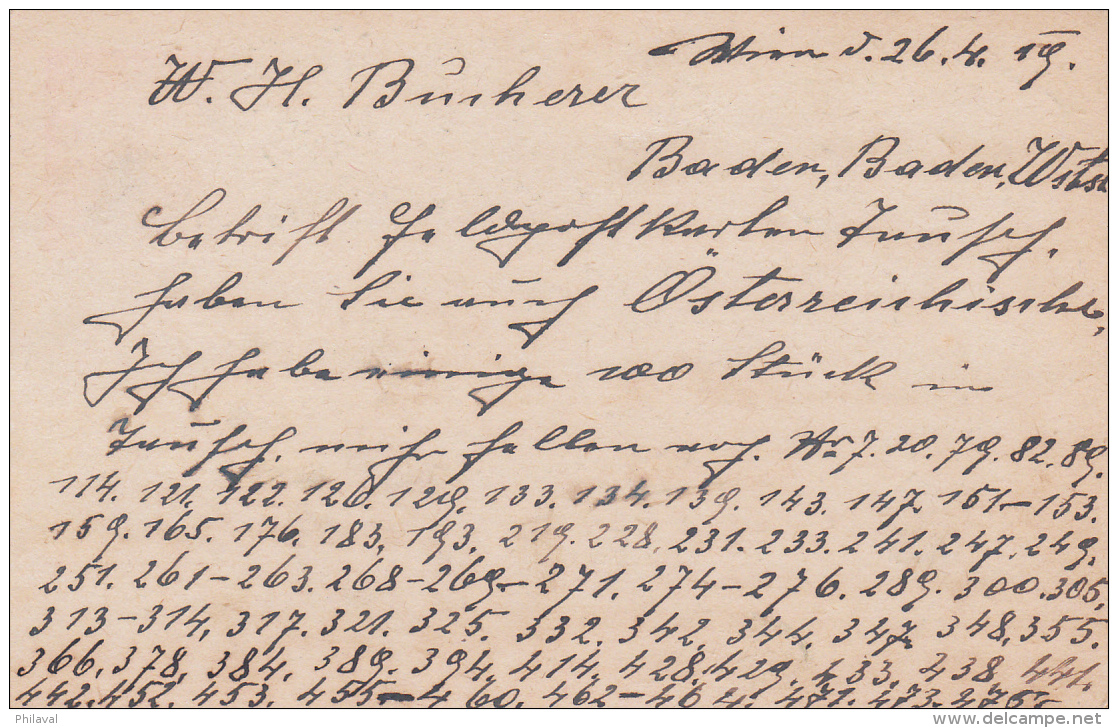 Wien d. 26.4. 19.
W. H. Bucherer
Baden, Baden,
Betrift Feldpostkarten Tausch,
haben Sie auch Österreichische,
Ich habe einige 100 Stück in
Tausch. mihr fellen noch. Nr 7. 20. 79. 82. 89.
114. 121. 122. 126. 129. 133. 134. 139. 143. 147. 151–153.
159. 165. 176. 183, 193, 219. 228. 231. 233. 241. 247. 249.
251. 261–263. 268–269–271. 274–276. 289. 300. 305,
313–314, 317. 321. 325. 332. 342. 344. 347. 348, 355.
366. 378, 384, 389. 394. 414. 428. 429. 433. 438. 441.
442. 452. 453. 455–460. 462–464. 471. 473. 475.
Philaval
delcampe.net